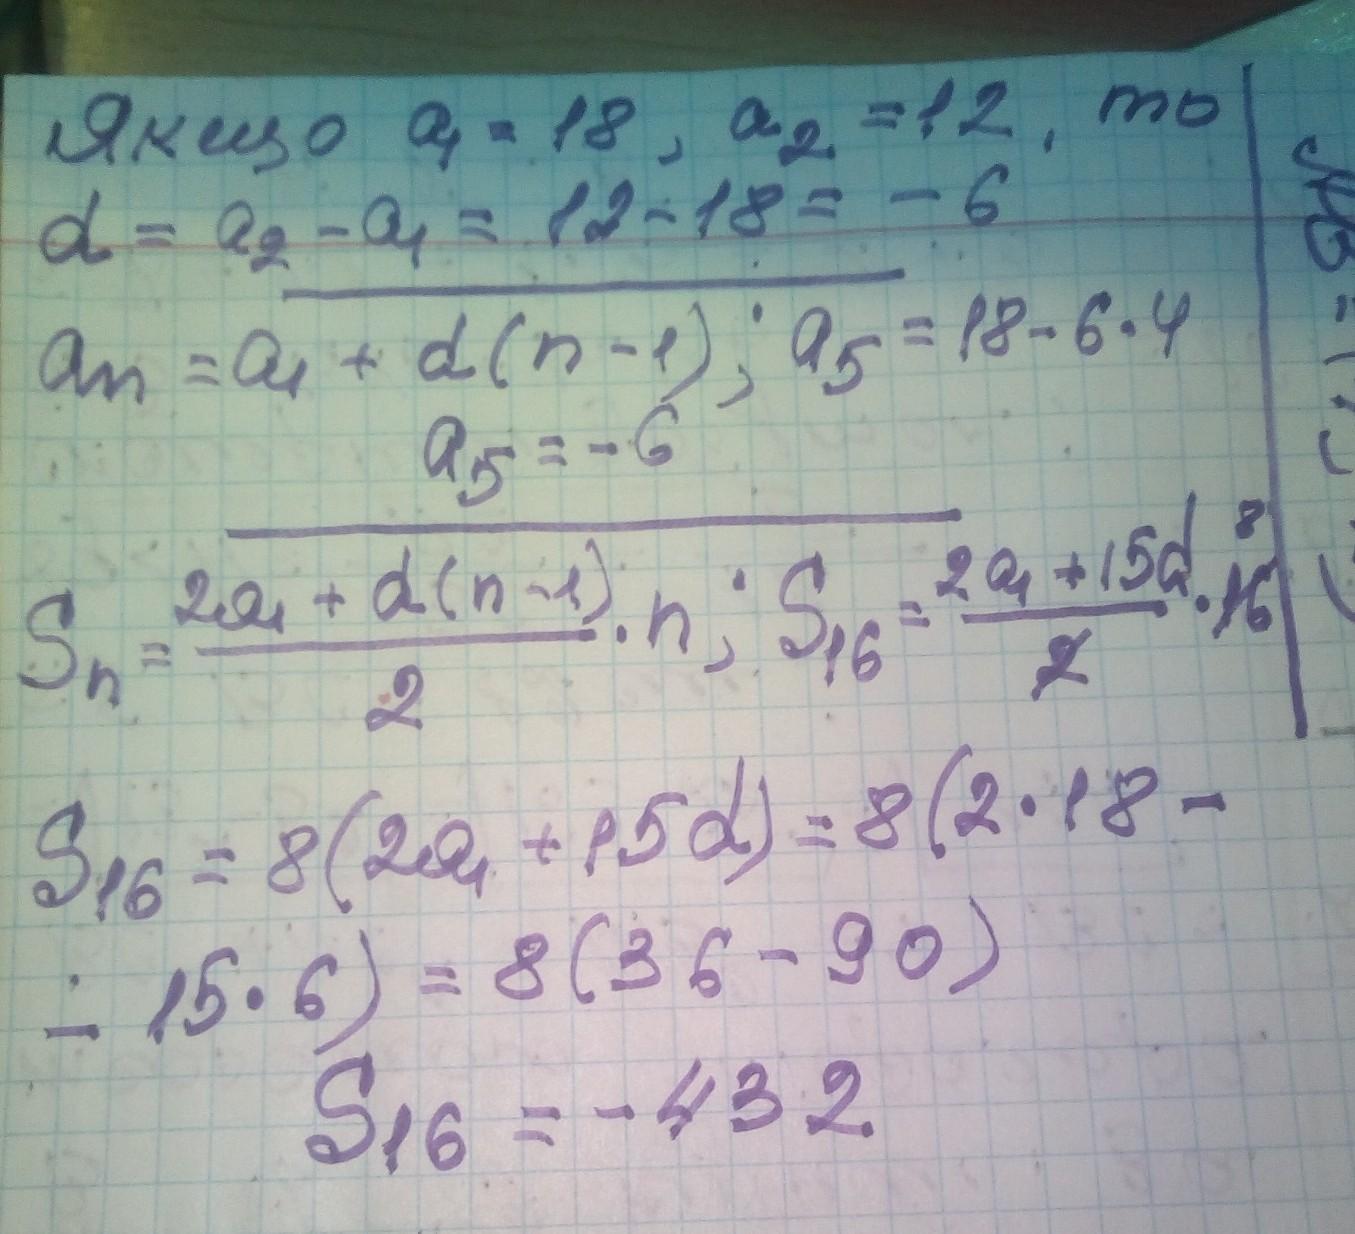 Якщо a₁ = 18, a₂ = 12, то
d = a₂ - a₁ = 12 - 18 = - 6
an = a₁ + d(n - 1); a₅ = 18 - 6 · 4
a₅ = - 6
Sn = (2a₁ + d(n - 1))/2 · n; S₁₆ = (2a₁ + 15d)/2 · 16 8
S₁₆ = 8(2a₁ + 15d) = 8(2 · 18 -
- 15 · 6) = 8(36 - 90)
S₁₆ = - 432